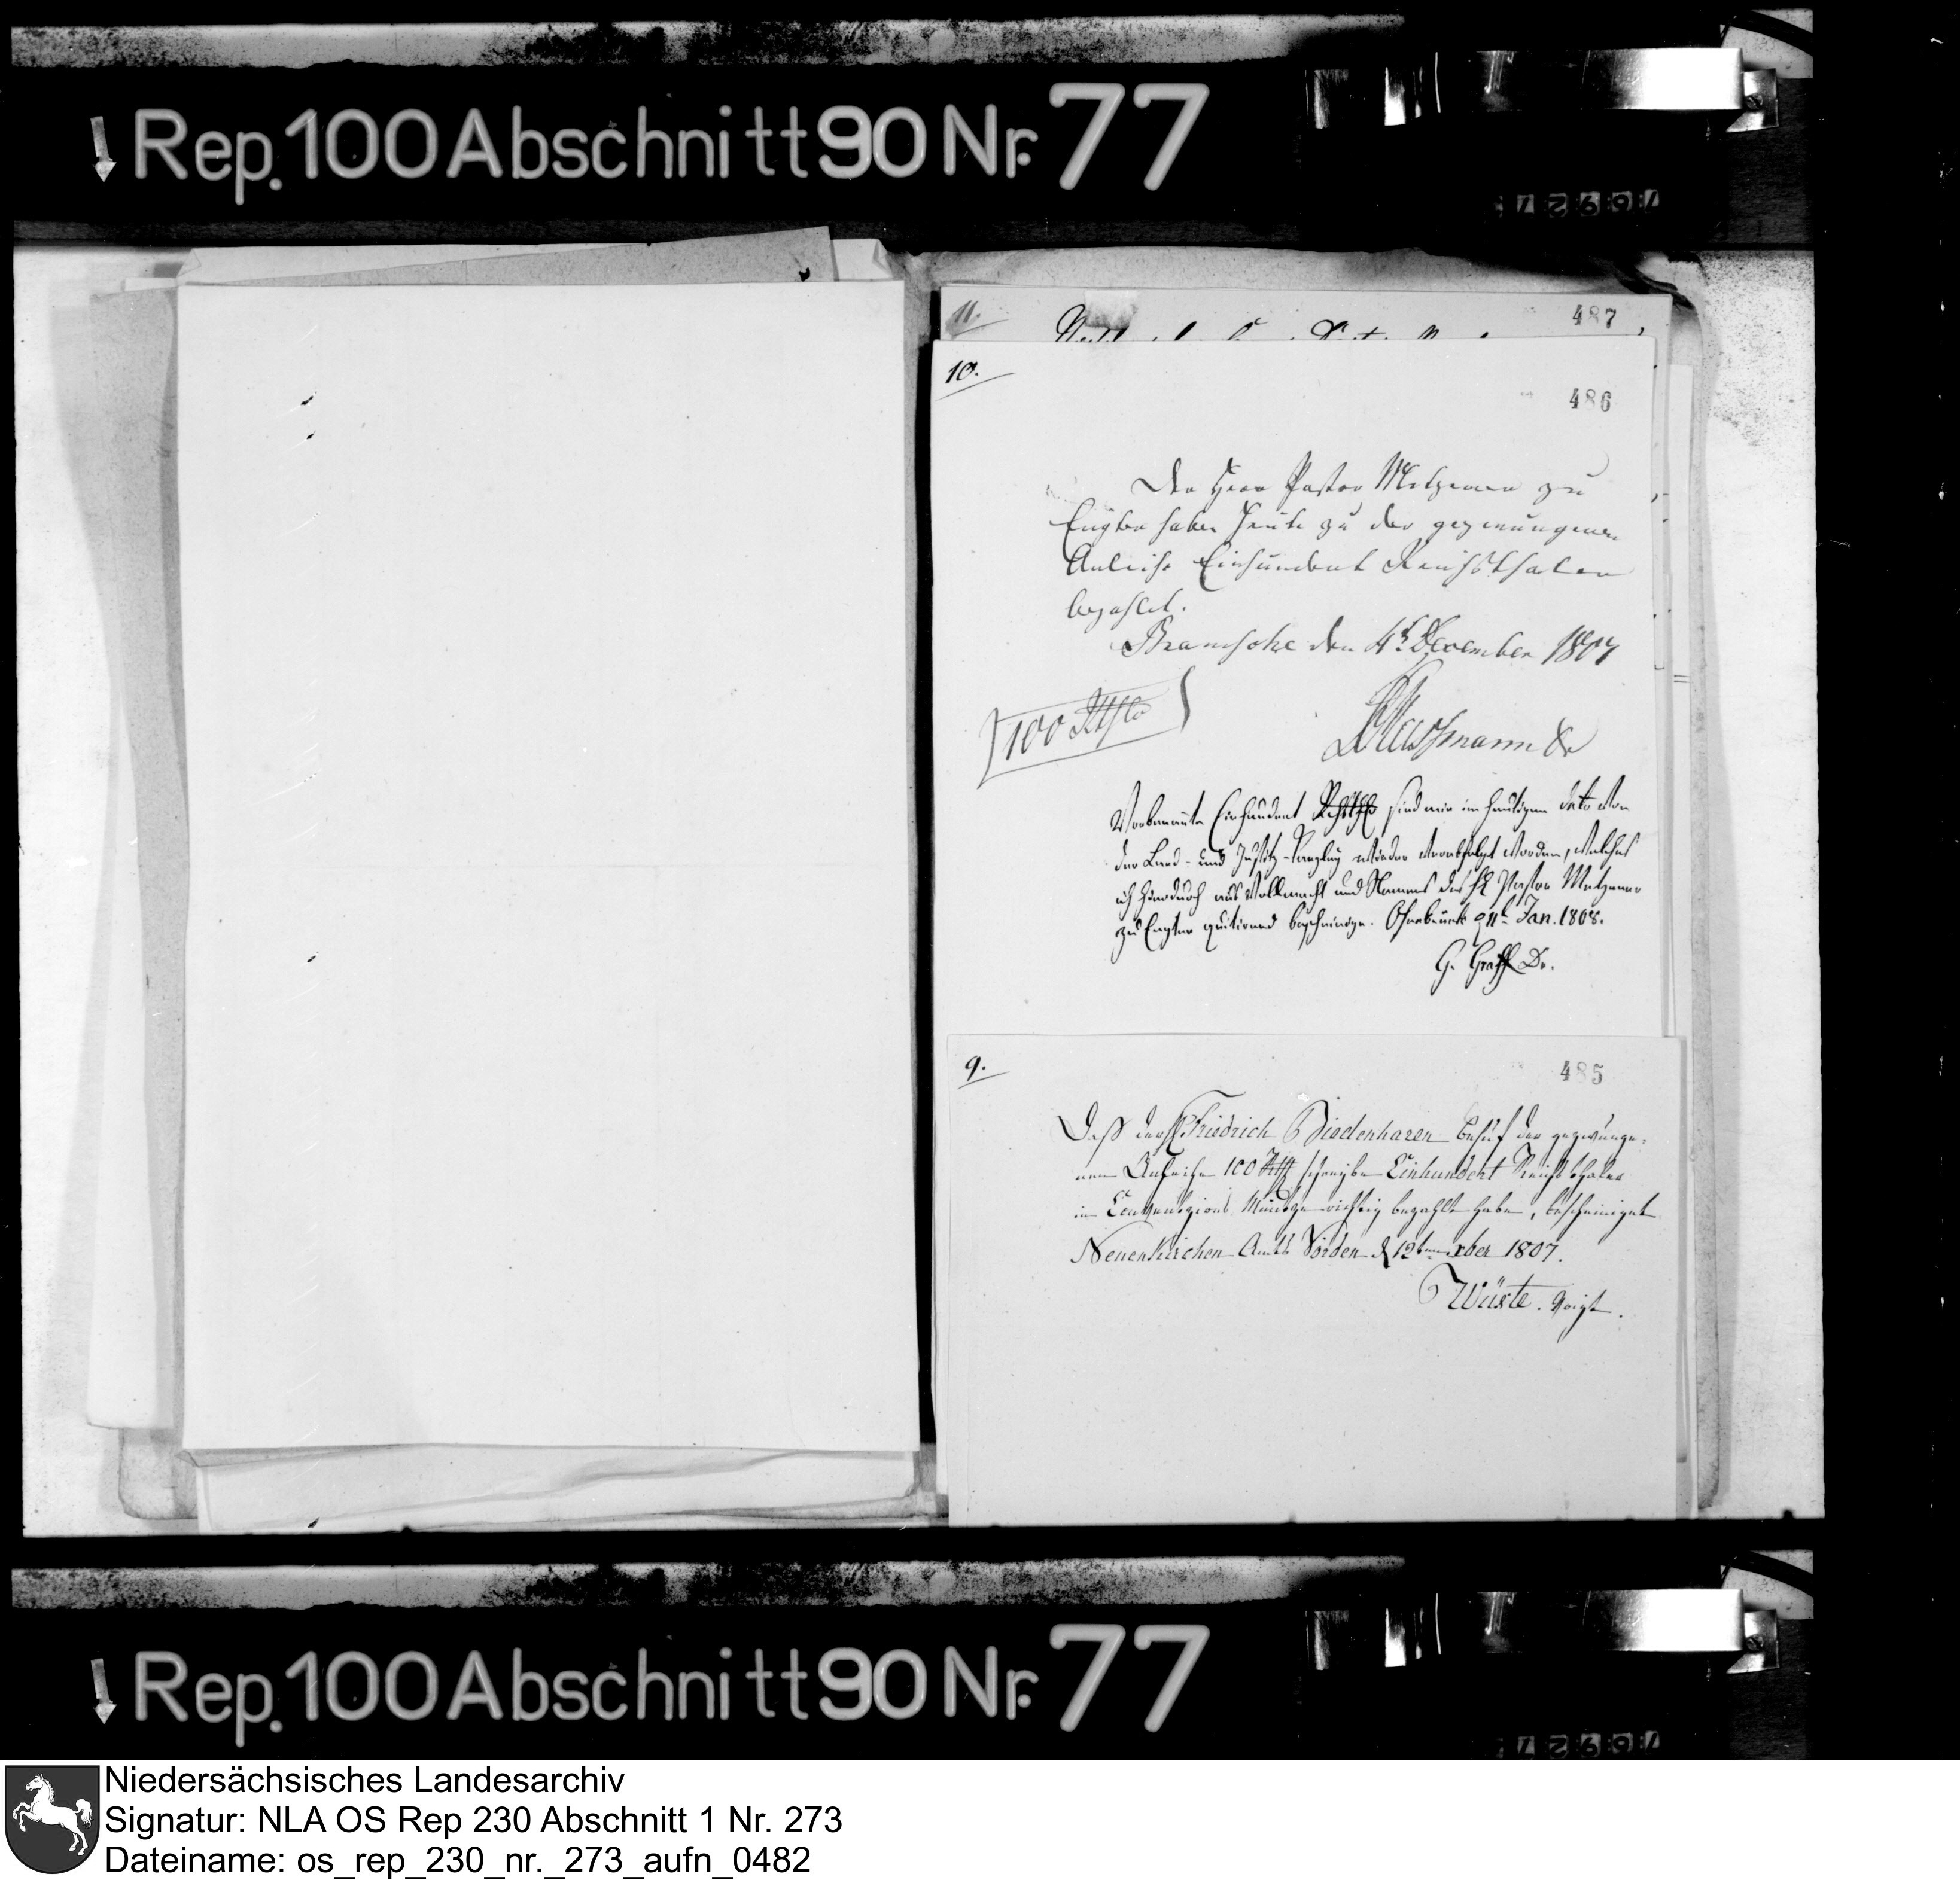 Rep. 100 Abschnitt 90 Nr. 77
11.
487
10.
486
Der Herr Pastor Metzener zu
Engter haben heute zu der gezwungenen
Anleihe Einhundert Reichsthaler
bezahlet.
Bramsche den 4t December 1807
100 Rthlr
Vorbenannte Einhundert Rthlr sind mir im heutigen dato von
der Land- und Justitz-Canzley wieder verabfolgt worden, welches
ich hierdurch aus Vollmacht und Namens des H Pastor Metzener
zu Engter quitirend bescheinige. Osnabrück d 11t Jan. 1808.
G. Graff Dr.
9.
485
Daß der H Friedrich Biedenharen behuf der gezwunge-
nen Anleihe 100 Rthlr schreibe Einhundert Reichsthaler
in Convenzions Müntze richtig bezahlt habe, bescheiniget
Neuenkirchen Amts Vörden d 12ten xber 1807.
Wüste. Voigt.
Rep. 100 Abschnitt 90 Nr. 77
Niedersächsisches Landesarchiv
Signatur: NLA OS Rep 230 Abschnitt 1 Nr. 273
Dateiname: os_rep_230_nr._273_aufn_0482